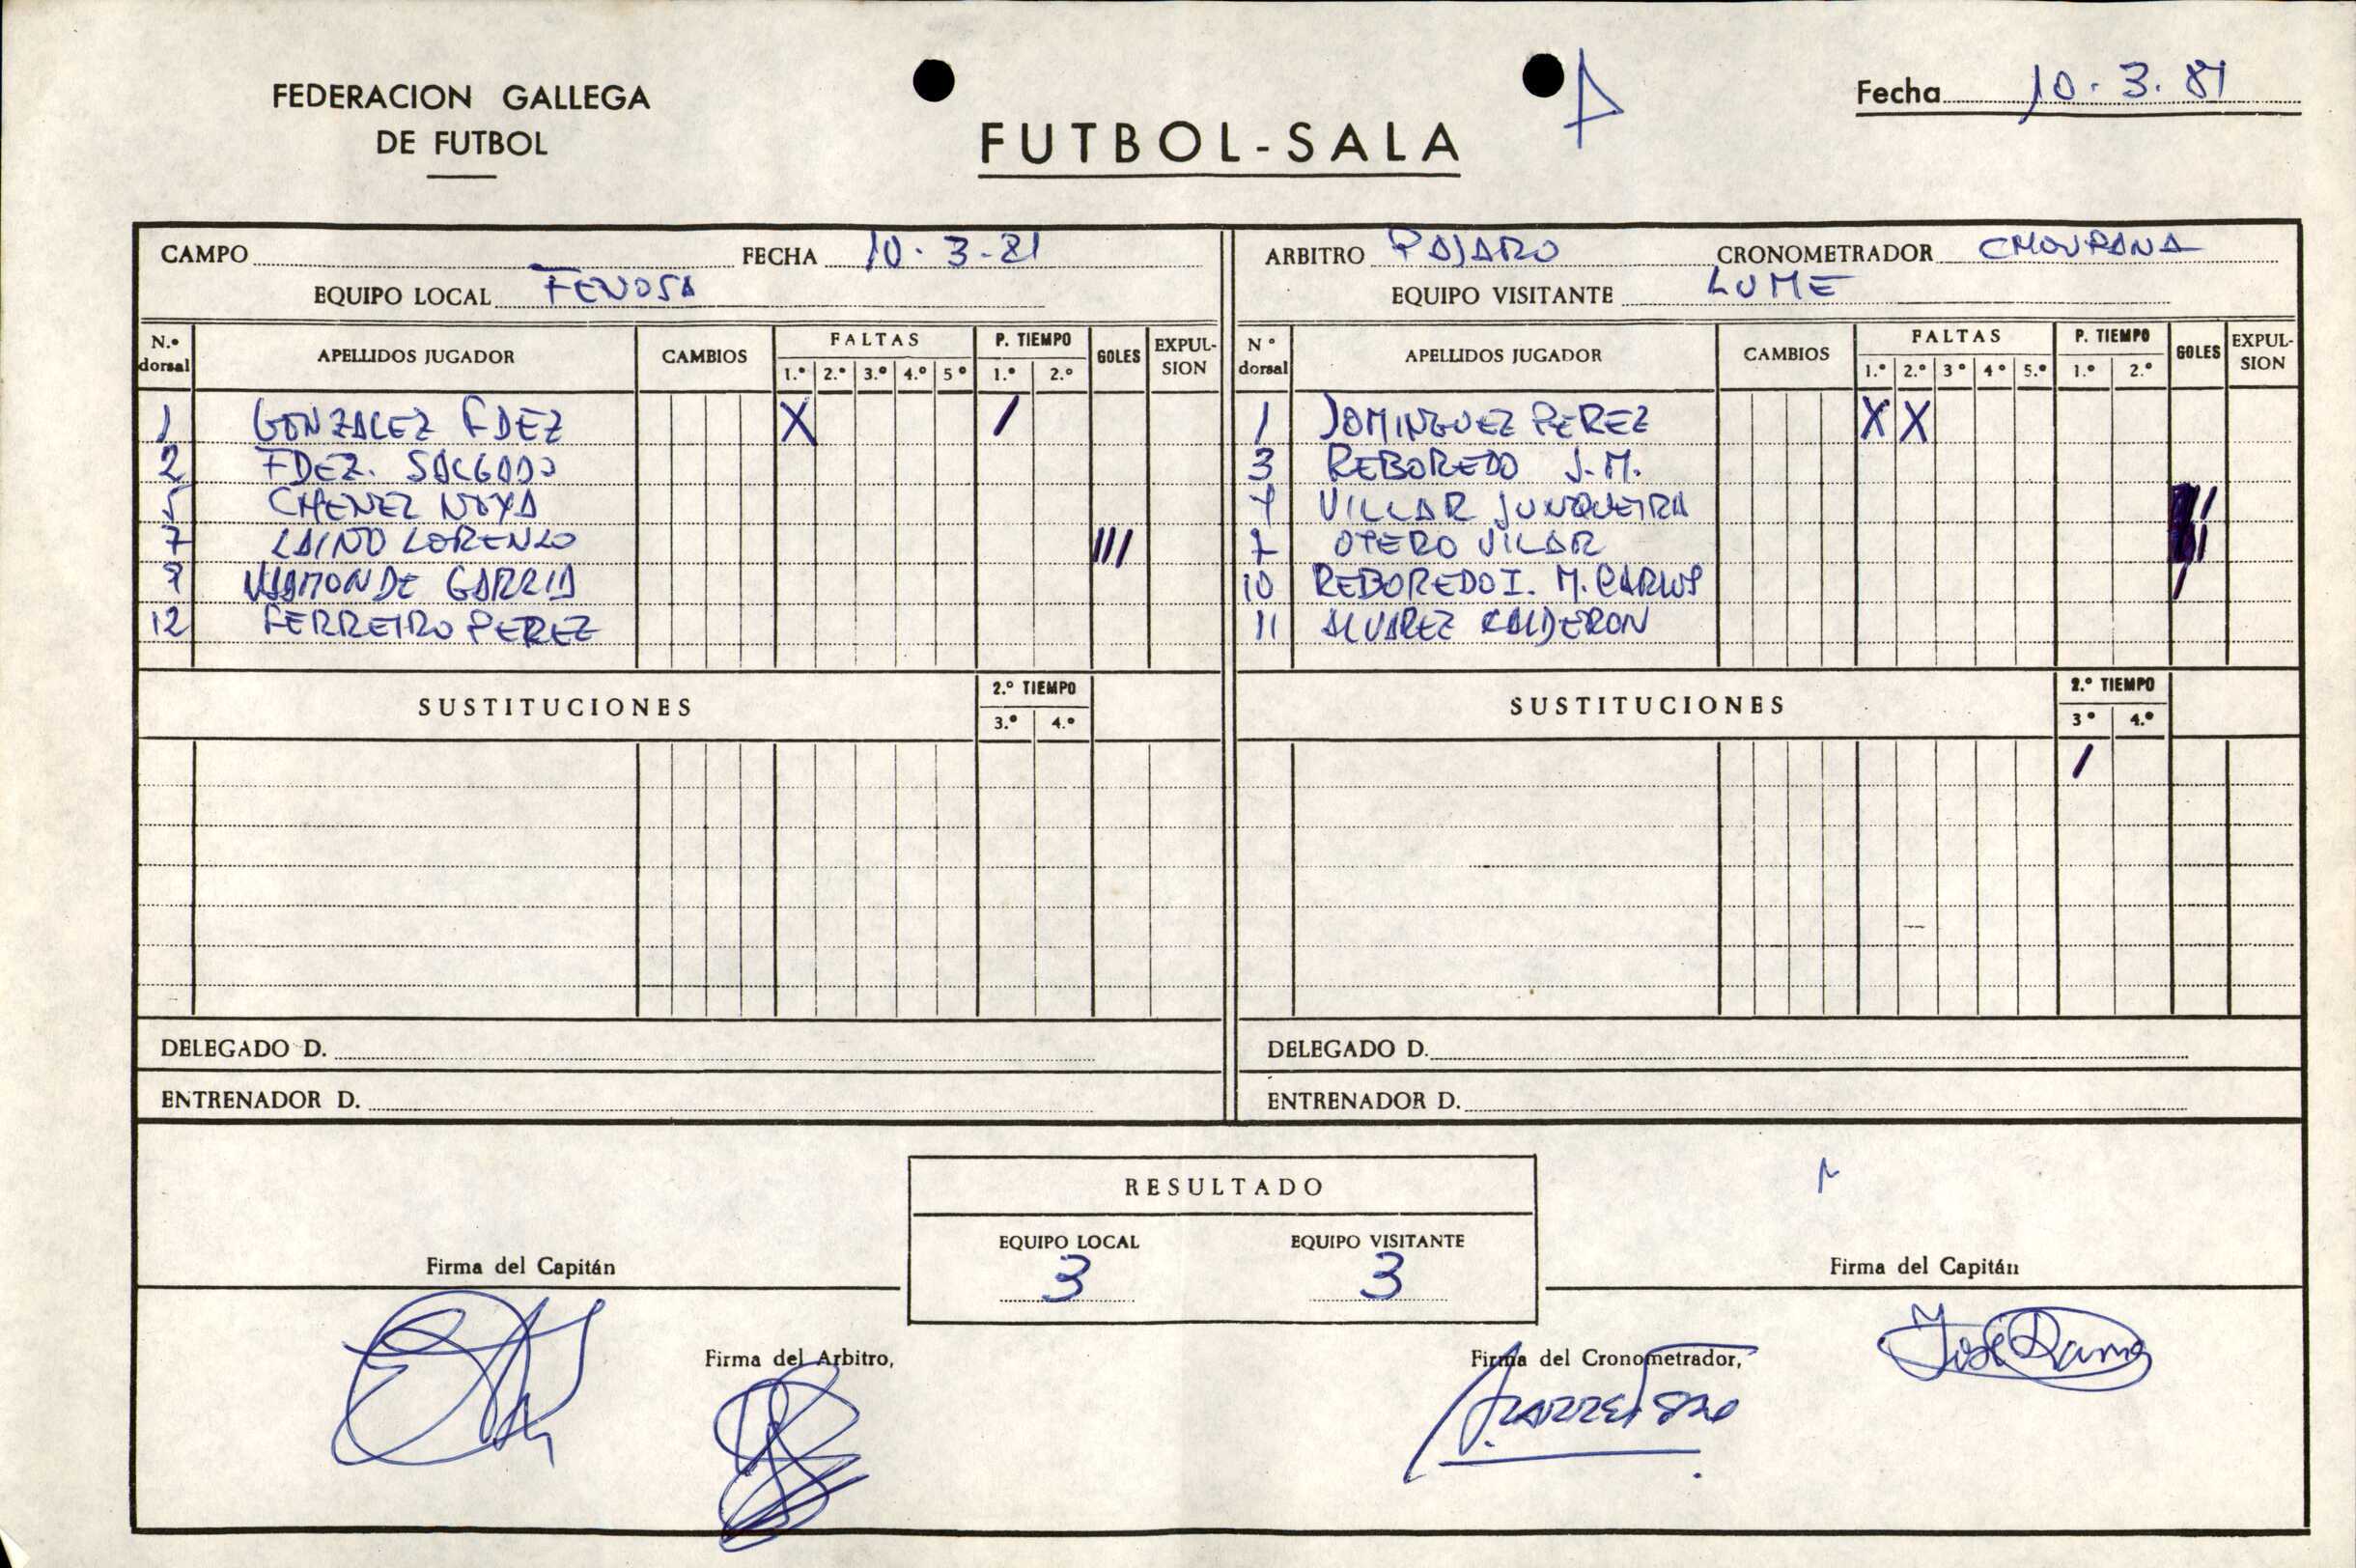 FEDERACION GALLEGA
DE FUTBOL
FUTBOL-SALA
Fecha 10-3-81
CAMPO FECHA 10-3-81
EQUIPO LOCAL FENOSA
ARBITRO PAJARO CRONOMETRADOR CHOUPANA
EQUIPO VISITANTE LUME
N.º dorsal APELLIDOS JUGADOR CAMBIOS FALTAS P. TIEMPO GOLES EXPULSION
1.º 2.º 3.º 4.º 5º 1.º 2.º
1 GONZALEZ FDEZ X /
2 FDEZ. SALGADO
5 CHENEL NOYA
7 LAINO LORENZO III
9 VIAMONDE GARRIA
12 FERREIRO PEREZ
SUSTITUCIONES 2.º TIEMPO
3.º 4.º
DELEGADO D.
ENTRENADOR D.
Nº dorsal APELLIDOS JUGADOR CAMBIOS FALTAS P. TIEMPO GOLES EXPULSION
1.º 2.º 3º 4º 5.º 1.º 2.º
1 DOMINGUEZ PEREZ X X
3 REBOREDO J.M.
VILLAR JUNQUEIRA
OTERO VILAR
10 REBOREDO I. M. CARLOS /
11 ALVAREZ CALDERON
SUSTITUCIONES 2.º TIEMPO
3º 4.º
/
DELEGADO D.
ENTRENADOR D.
RESULTADO
EQUIPO LOCAL EQUIPO VISITANTE
3 3
Firma del Capitán
Firma del Capitán
Firma del Arbitro,
Firma del Cronometrador,
José Ramón